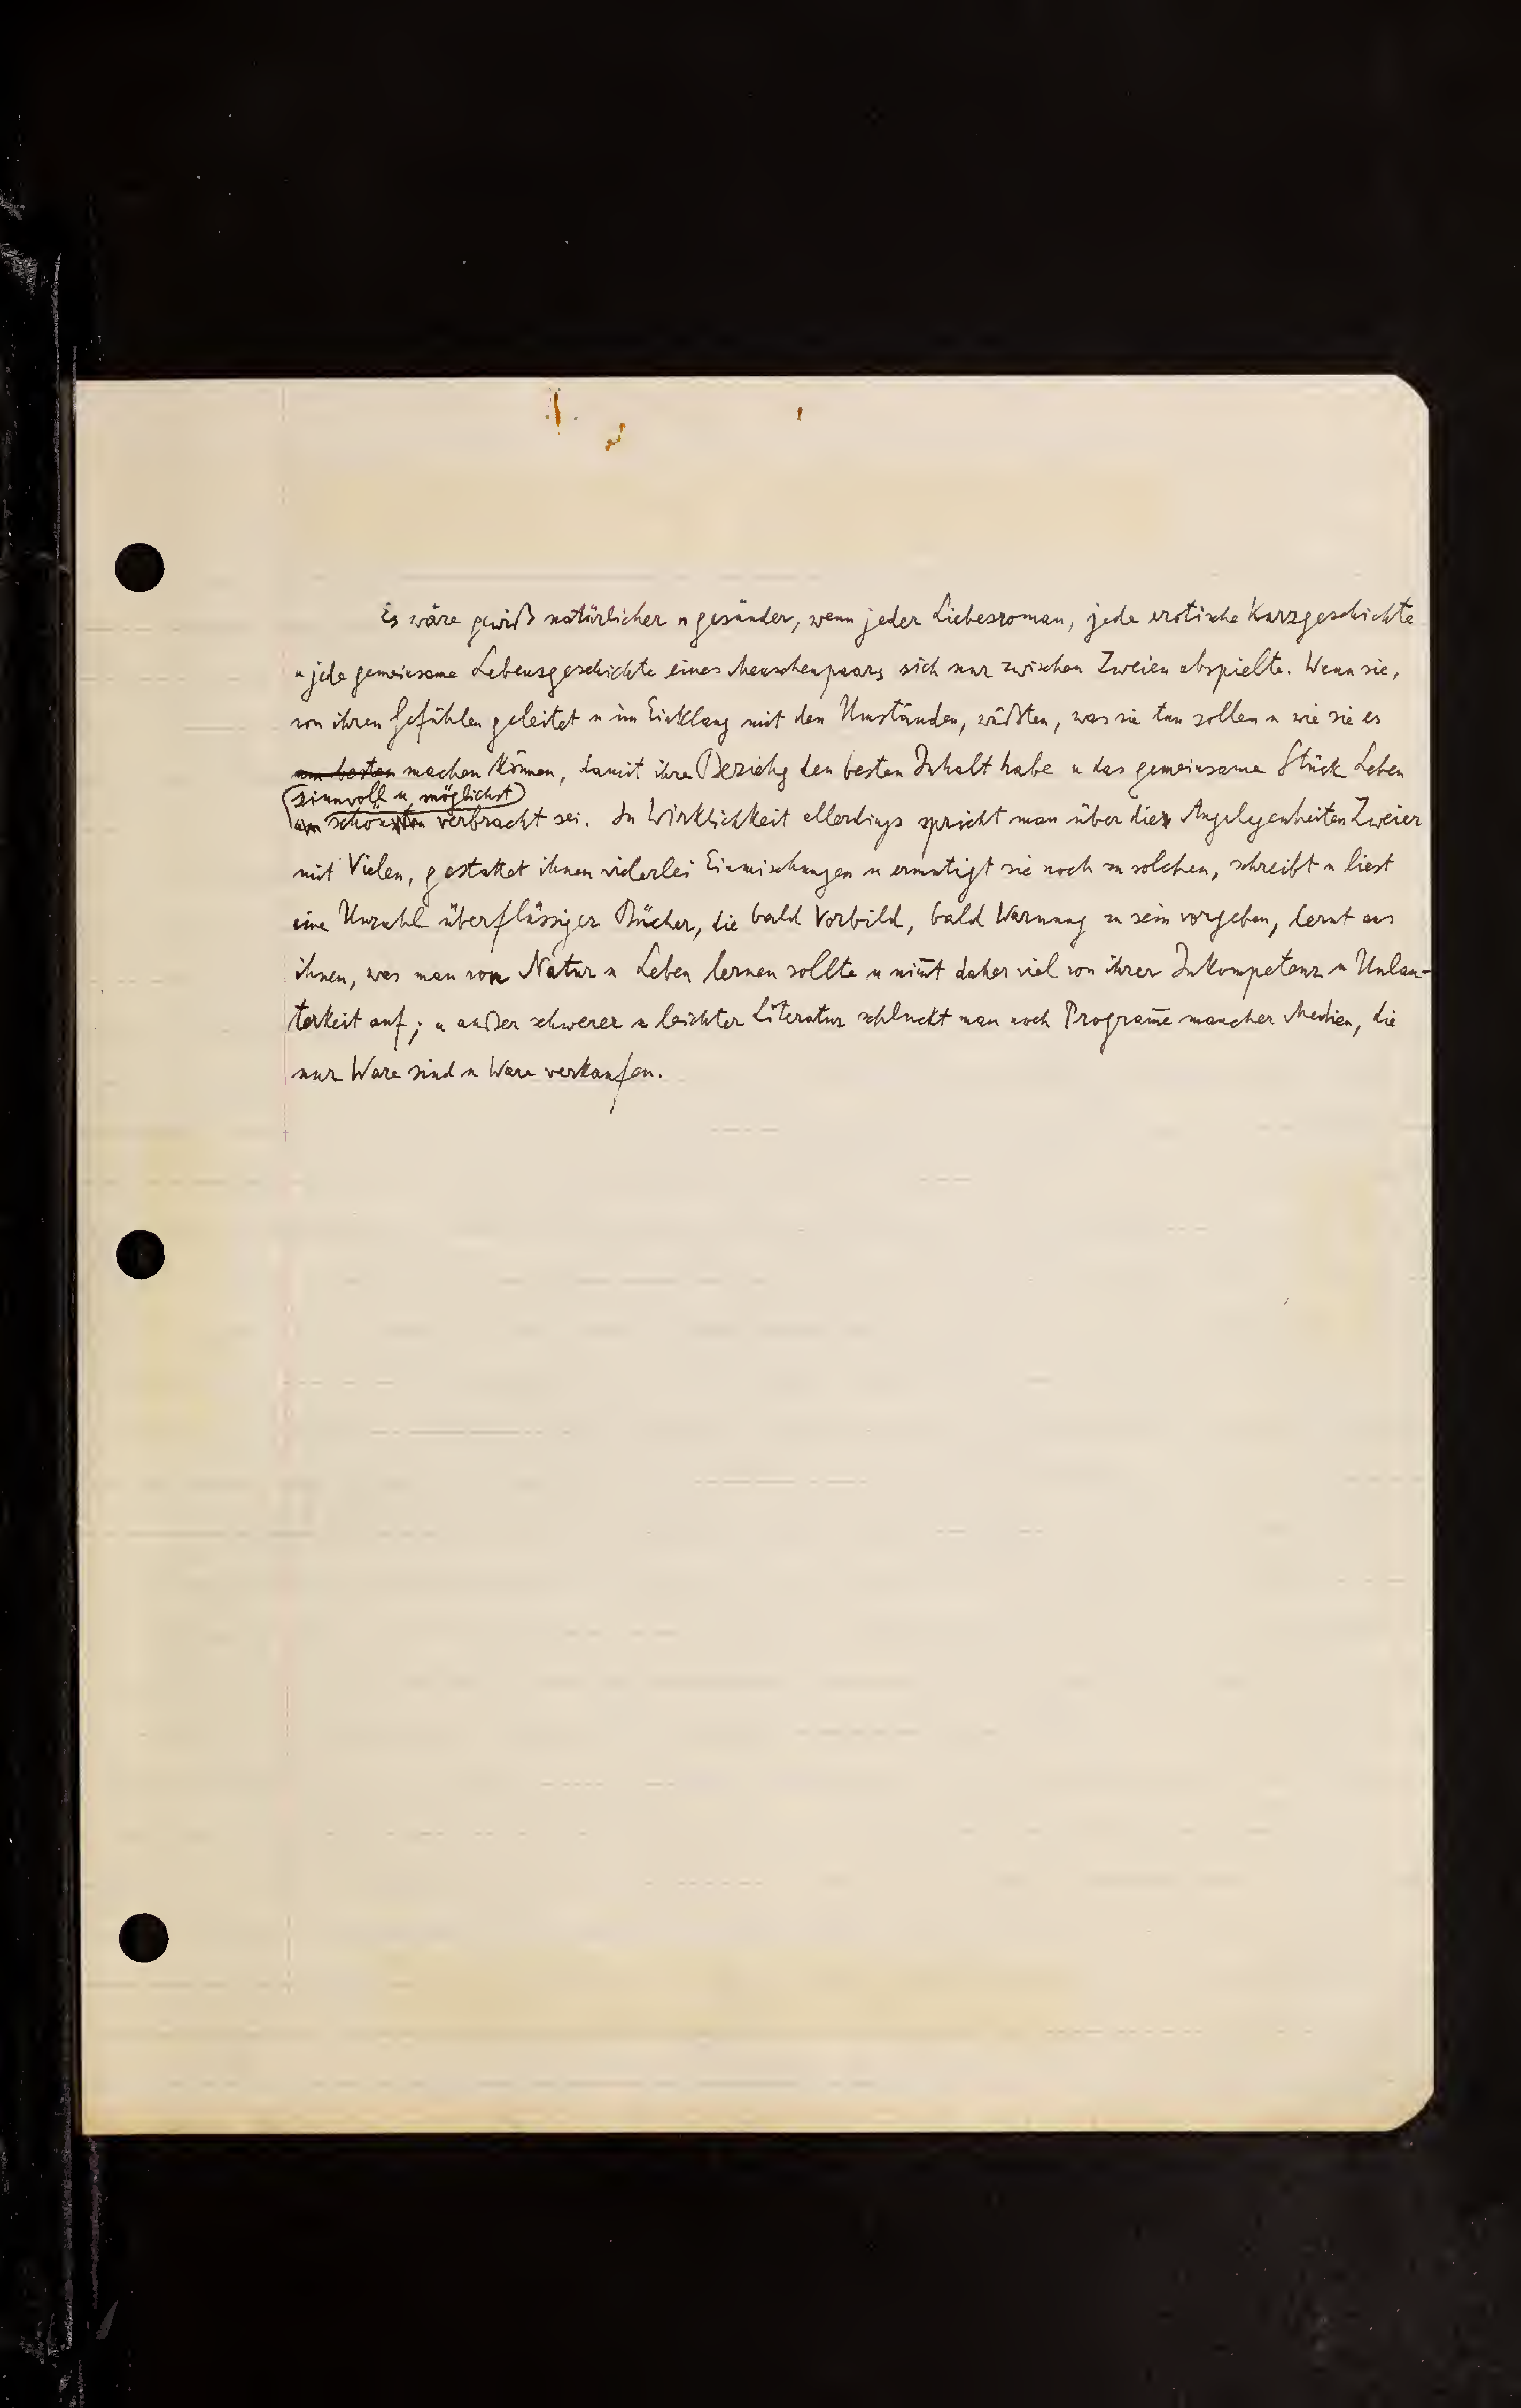 Es wäre gewiß natürlicher u gesünder, wenn jeder Liebesroman, jede erotische Kurzgeschichte
u jede gemeinsame Lebensgeschichte eines Menschenpaars sich nur zwischen Zweien abspielte. Wenn sie,
von ihren Gefühlen geleitet u im Einklang mit den Umständen, wüßten, was sie tun sollen u wie sie es
am besten machen können, damit ihre Beziehg den besten Inhalt habe u das gemeinsame Stück Leben
sinnvoll u möglichst
am schönsten verbracht sei. In Wirklichkeit allerdings spricht man über die Angelegenheiten Zweier
mit Vielen, gestattet ihnen vielerlei Einmischungen u ermutigt sie noch zu solchen, schreibt u liest
eine Unzahl überflüssiger Bücher, die bald Vorbild, bald Warnung zu sein vorgeben, lernt aus
ihnen, was man von Natur u Leben lernen sollte u nim̄t daher viel von ihrer Inkompetenz u Unlau-
terkeit auf; u außer schwerer u leichter Literatur schluckt man noch Program̄e mancher Medien, die
nur Ware sind u Ware verkaufen.